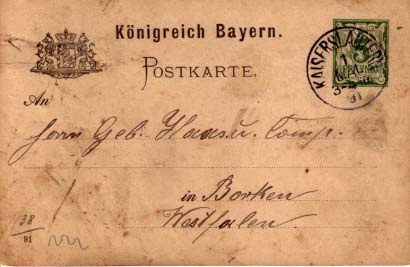 Königreich Bayern.
POSTKARTE.
KAISERSLAUTERN
An
Herrn Geb. Haas u. Comp.
in Borken
Westfalen.
38
91